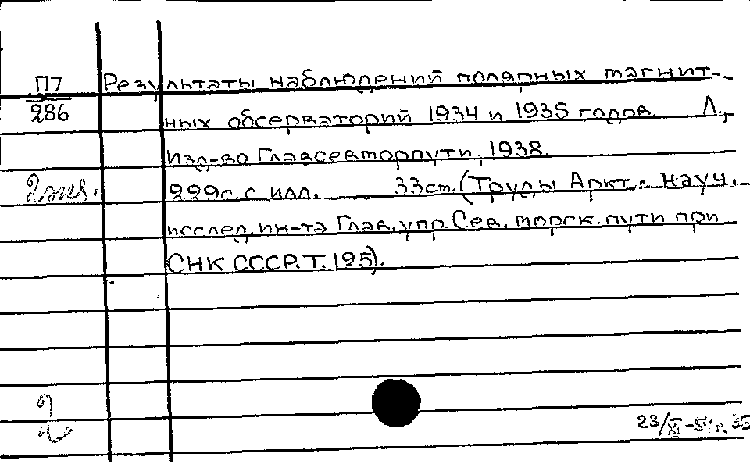 П7 Результаты наблюдений полярных магнит-
286 ных обсерваторий 1934 и 1935 годов. Л.,
Изд-во Главсевморпути, 1938.
2 экз. 299с. с илл. 33см. (Труды Аркт. науч.
исслед. ин-та Глав. упр. Сев. морск. пути при
СНК СССР. Т. 195).
23/XI